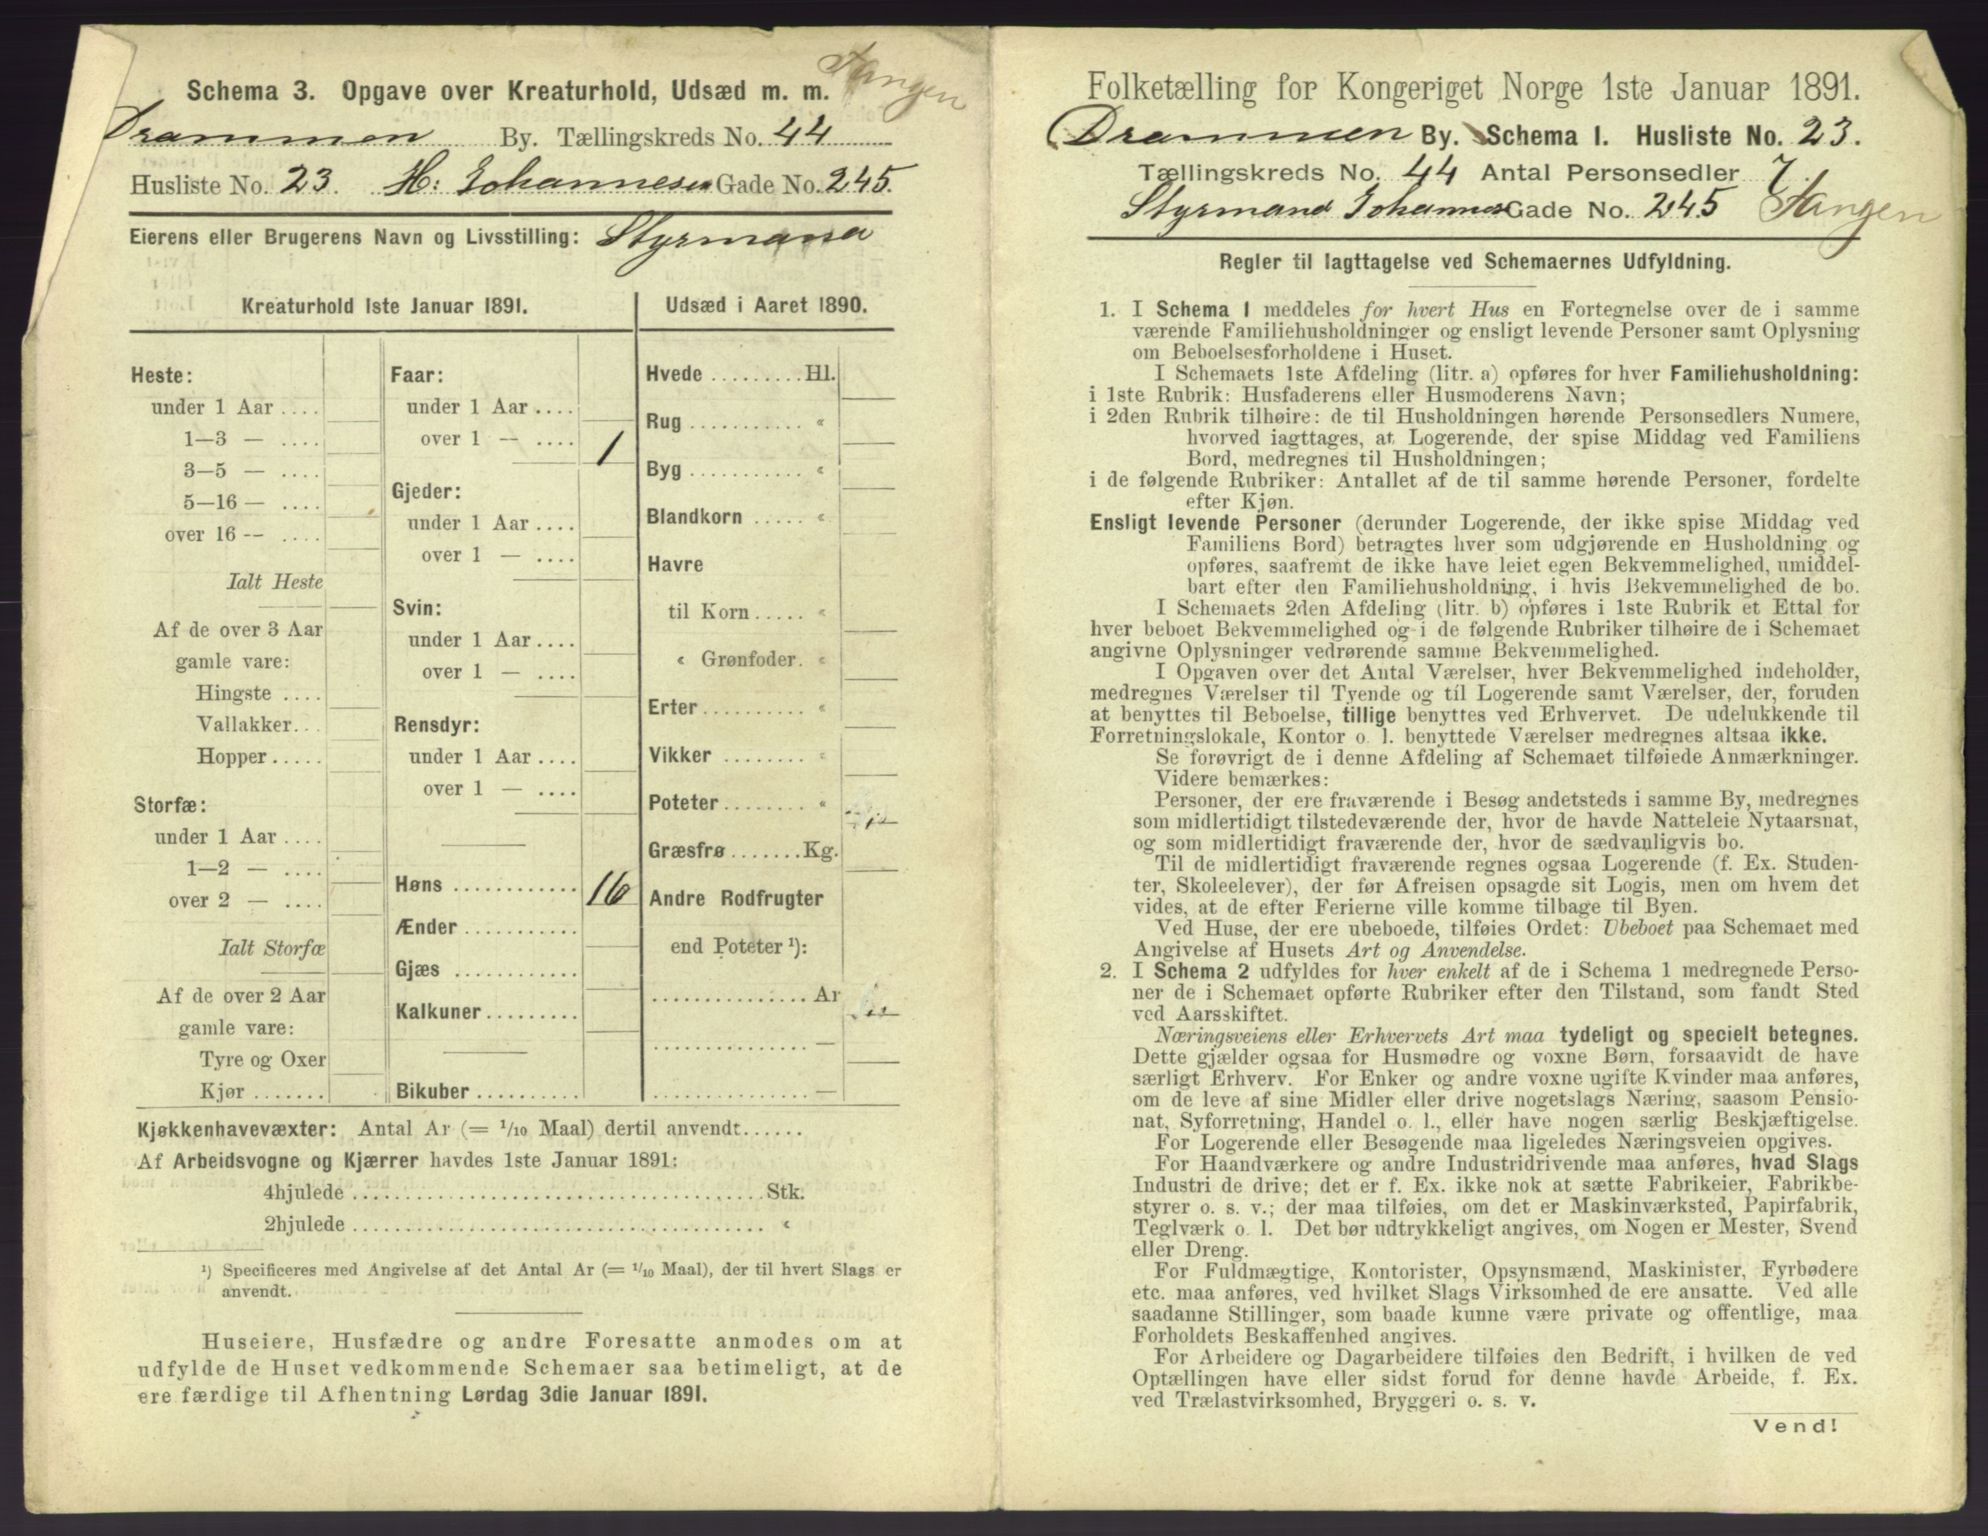 Tangen
Schema 3. Opgave over Kreaturhold, Udsæd m. m.
Drammen By. Tællingskreds No. 44
Husliste No. 23. H. Johannesen Gade No. 245.
Eierens eller Brugerens Navn og Livsstilling: Styrmand
Kreaturhold 1ste Januar 1891.
Heste:
under 1 Aar ....
1—3 — ....
3—5 — ....
5—16 — ....
over 16 -- ....
Ialt Heste
Af de over 3 Aar
gamle vare:
Hingste ....
Vallakker...
Hopper.....
Storfæ:
under 1 Aar ....
1—2 — ....
over 2 — ....
Ialt Storfæ
Af de over 2 Aar
gamle vare:
Tyre og Oxer
Kjør .......
Faar:
under 1 Aar ....
over 1 — .... 1
Gjeder:
under 1 Aar ....
over 1 — ....
Svin:
under 1 Aar ....
over 1 — ....
Rensdyr:
under 1 Aar ....
over 1 — ....
Høns ............ 16
Ænder ...........
Gjæs ............
Kalkuner.........
Bikuber ..........
Udsæd i Aaret 1890.
Hvede .........Hl.
Rug ........... «
Byg ........... «
Blandkorn ..... «
Havre
til Korn ..... «
« Grønfoder. «
Erter.......... «
Vikker ........ «
Poteter........ «
Græsfrø .......Kg.
Andre Rodfrugter
end Poteter ¹):
...............Ar
............... —
............... —
Kjøkkenhavevæxter: Antal Ar (= 1/10 Maal) dertil anvendt......
Af Arbeidsvogne og Kjærrer havdes 1ste Januar 1891:
4hjulede ........................................Stk.
2hjulede ........................................ «
¹) Specificeres med Angivelse af det Antal Ar (= 1/10 Maal), der til hvert Slags er
anvendt.
Huseiere, Husfædre og andre Foresatte anmodes om at
udfylde de Huset vedkommende Schemaer saa betimeligt, at de
ere færdige til Afhentning Lørdag 3die Januar 1891.
Folketælling for Kongeriget Norge 1ste Januar 1891.
Drammen By. Schema I. Husliste No. 23.
Tællingskreds No. 44 Antal Personsedler 7.
Styrmand Johannes Gade No. 245 Tangen
Regler til Iagttagelse ved Schemaernes Udfyldning.
1. I Schema 1 meddeles for hvert Hus en Fortegnelse over de i samme
værende Familiehusholdninger og ensligt levende Personer samt Oplysning
om Beboelsesforholdene i Huset.
I Schemaets 1ste Afdeling (litr. a) opføres for hver Familiehusholdning:
i 1ste Rubrik: Husfaderens eller Husmoderens Navn;
i 2den Rubrik tilhøire: de til Husholdningen hørende Personsedlers Numere,
hvorved iagttages, at Logerende, der spise Middag ved Familiens
Bord, medregnes til Husholdningen;
i de følgende Rubriker: Antallet af de til samme hørende Personer, fordelte
efter Kjøn.
Ensligt levende Personer (derunder Logerende, der ikke spise Middag ved
Familiens Bord) betragtes hver som udgjørende en Husholdning og
opføres, saafremt de ikke have leiet egen Bekvemmelighed, umiddel-
bart efter den Familiehusholdning, i hvis Bekvemmelighed de bo.
I Schemaets 2den Afdeling (litr. b) opføres i 1ste Rubrik et Ettal for
hver beboet Bekvemmelighed og i de følgende Rubriker tilhøire de i Schemaet
angivne Oplysninger vedrørende samme Bekvemmelighed.
I Opgaven over det Antal Værelser, hver Bekvemmelighed indeholder,
medregnes Værelser til Tyende og til Logerende samt Værelser, der, foruden
at benyttes til Beboelse, tillige benyttes ved Erhvervet. De udelukkende til
Forretningslokale, Kontor o. l. benyttede Værelser medregnes altsaa ikke.
Se forøvrigt de i denne Afdeling af Schemaet tilføiede Anmærkninger.
Videre bemærkes:
Personer, der ere fraværende i Besøg andetsteds i samme By, medregnes
som midlertidigt tilstedeværende der, hvor de havde Natteleie Nytaarsnat,
og som midlertidigt fraværende der, hvor de sædvanligvis bo.
Til de midlertidigt fraværende regnes ogsaa Logerende (f. Ex. Studen-
ter, Skoleelever), der før Afreisen opsagde sit Logis, men om hvem det
vides, at de efter Ferierne ville komme tilbage til Byen.
Ved Huse, der ere ubeboede, tilføies Ordet: Ubeboet paa Schemaet med
Angivelse af Husets Art og Anvendelse.
2. I Schema 2 udfyldes for hver enkelt af de i Schema 1 medregnede Perso-
ner de i Schemaet opførte Rubriker efter den Tilstand, som fandt Sted
ved Aarsskiftet.
Næringsveiens eller Erhvervets Art maa tydeligt og specielt betegnes.
Dette gjælder ogsaa for Husmødre og voxne Børn, forsaavidt de have
særligt Erhverv. For Enker og andre voxne ugifte Kvinder maa anføres,
om de leve af sine Midler eller drive nogetslags Næring, saasom Pensio-
nat, Syforretning, Handel o. l., eller have nogen særlig Beskjæftigelse.
For Logerende eller Besøgende maa ligeledes Næringsveien opgives.
For Haandværkere og andre Industridrivende maa anføres, hvad Slags
Industri de drive; det er f. Ex. ikke nok at sætte Fabrikeier, Fabrikbe-
styrer o. s. v.; der maa tilføies, om det er Maskinværksted, Papirfabrik,
Teglværk o. l. Det bør udtrykkeligt angives, om Nogen er Mester, Svend
eller Dreng.
For Fuldmægtige, Kontorister, Opsynsmænd, Maskinister, Fyrbødere
etc. maa anføres, ved hvilket Slags Virksomhed de ere ansatte. Ved alle
saadanne Stillinger, som baade kunne være private og offentlige, maa
Forholdets Beskaffenhed angives.
For Arbeidere og Dagarbeidere tilføies den Bedrift, i hvilken de ved
Optællingen have eller sidst forud for denne havde Arbeide, f. Ex.
ved Trælastvirksomhed, Bryggeri o. s. v.
Vend!